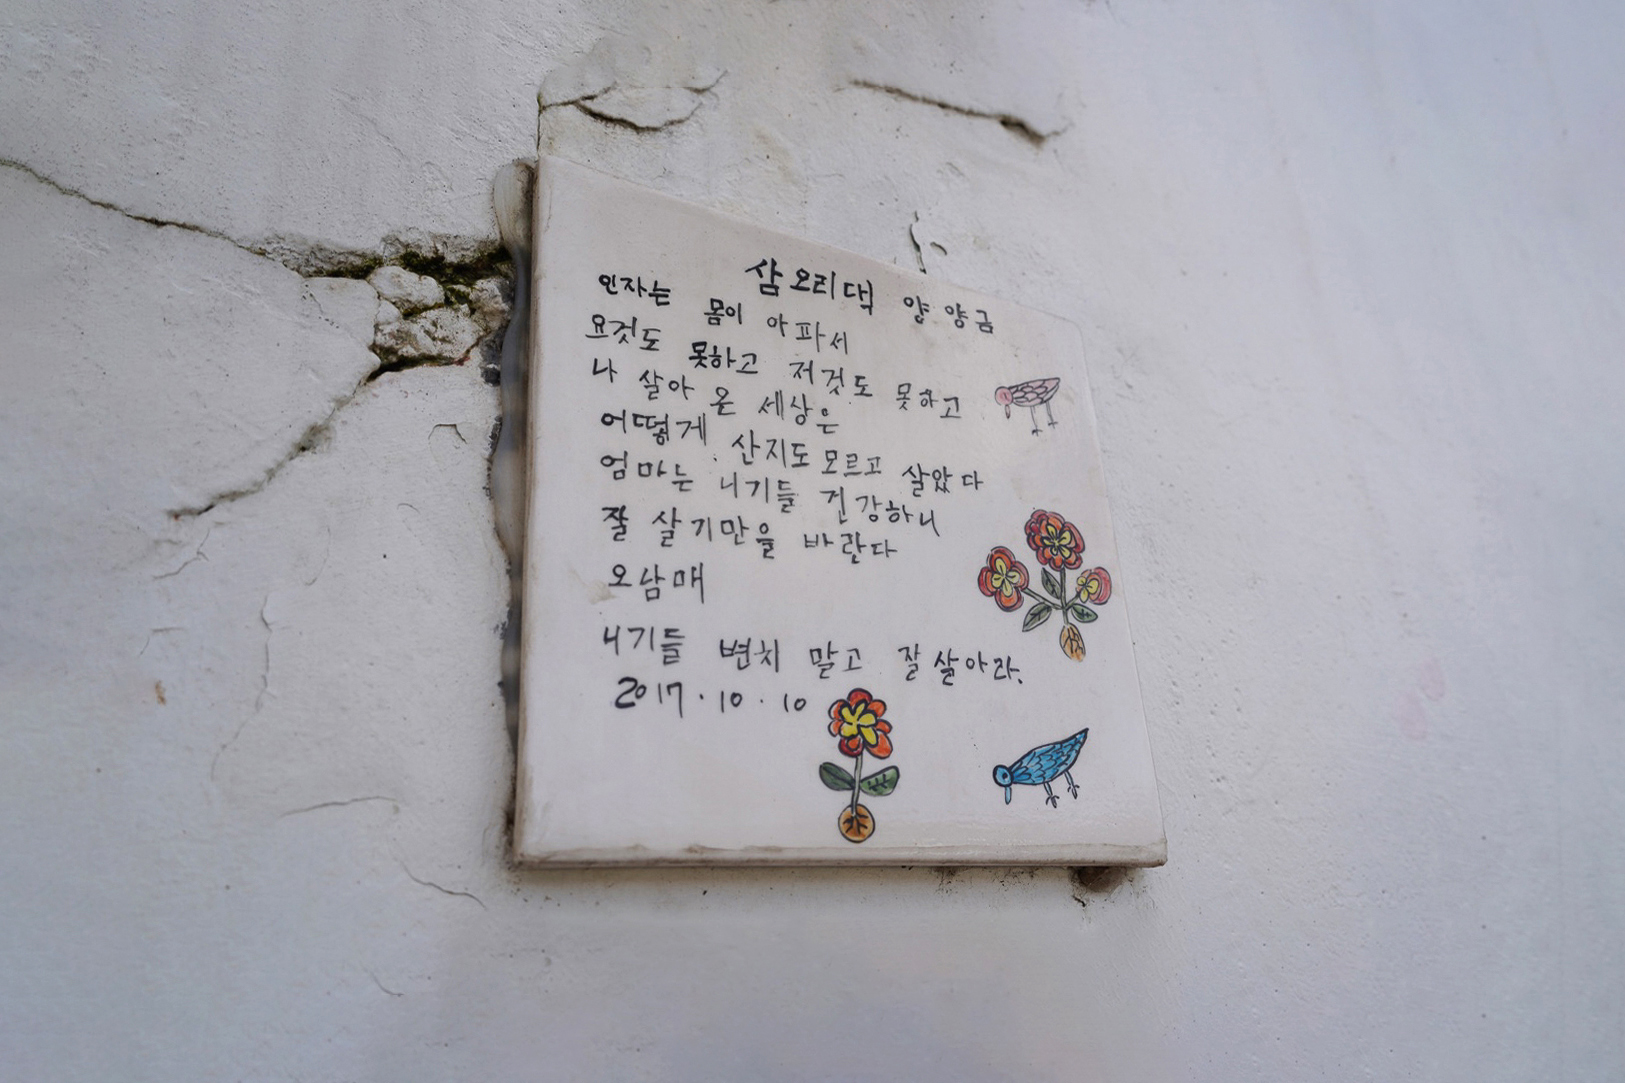 삼오리댁 양양금
인자는 몸이 아파서
요것도 못하고 저것도 못하고
나 살아 온 세상은
어떻게 산지도 모르고 살았다
엄마는 니기들 건강하니
잘 살기만을 바란다
오남매
니기들 변치 말고 잘 살아라.
2017.10.10